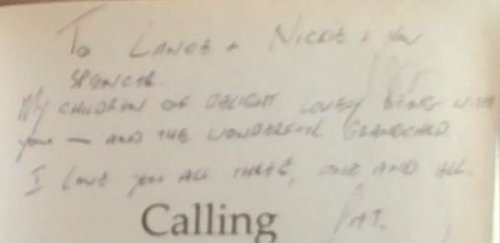 To LANCE & NICKIE & NOW
SPENCER.
MY CHILDREN OF DELIGHT. LOVELY BEING WITH
you — AND THE WONDERFUL GRANDCHILD.
I LOVE you ALL THREE, ONE AND ALL.
Calling
PAT.